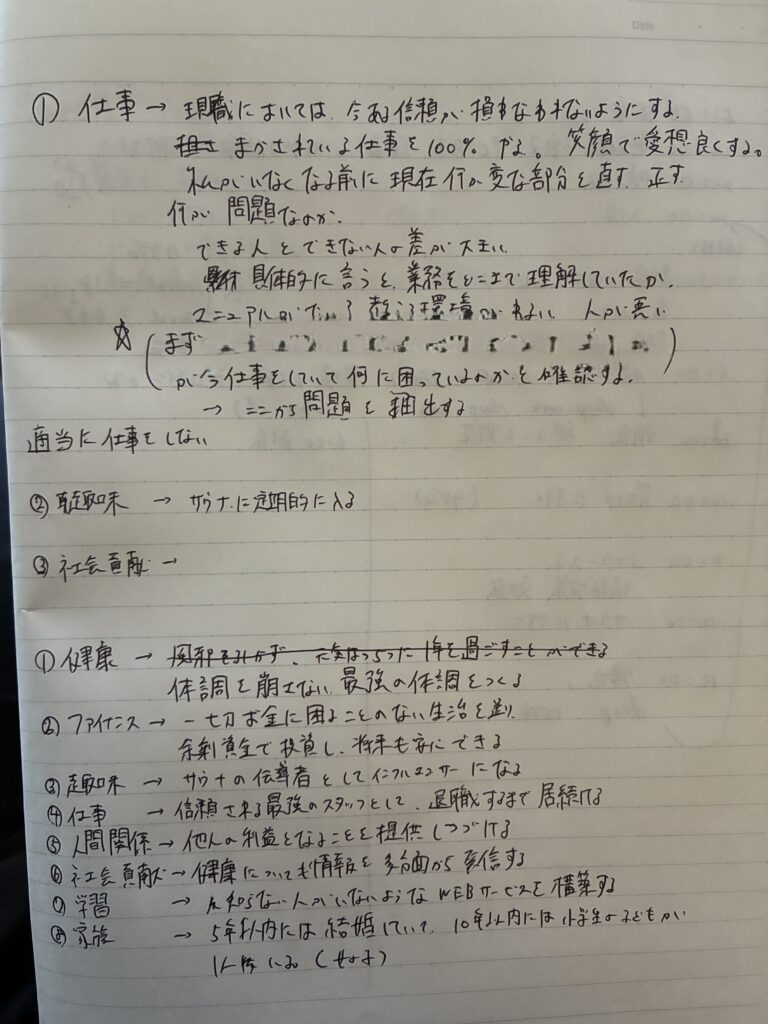 Date
① 仕事 → 現職においては、今ある信頼が損なわれないようにする。
まかされている仕事を100%やる。笑顔で愛想良くする。
私がいなくなる前に現在何か変な部分を直す、正す
何が問題なのか、
できる人とできない人の差が大きい
具体的に言うと、業務をどこまで理解していたか、
マニュアルが 教える環境が 人が悪い
☆(まず
が今仕事をしていて何に困っているのかを確認する。)
→ ここから問題を抽出する
適当に仕事をしない
② 趣味 → サウナに定期的に入る
③ 社会貢献 →
① 健康 → 風邪をひかず、元気はつらつに1年を過ごすことができる
体調を崩さない最強の体調をつくる
② ファイナンス → 一切お金に困ることのない生活を送り、
余剰資金で投資し、将来も安心できる
③ 趣味 → サウナの伝導者としてインフルエンサーになる
④ 仕事 → 信頼される最強のスタッフとして、退職するまで居続ける
⑤ 人間関係 → 他人の利益となることを提供しつづける
⑥ 社会貢献 → 健康についても情報を多方面から発信する
⑦ 学習 → 知らない人がいないようなWEBサービスを構築する
⑧ 家族 → 5年以内には結婚していて、10年以内には小学生の子どもが
1人いる(女の子)